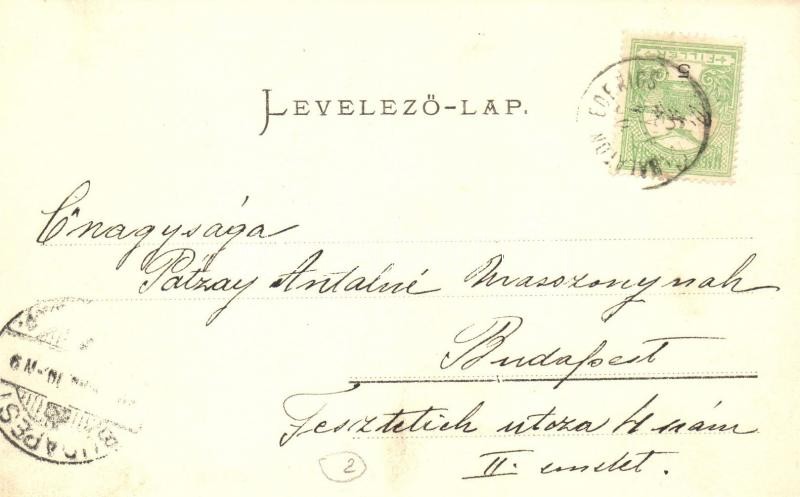 LEVELEZŐ-LAP.
FILLÉR
5
BALATON EDERICS
Őnagysága
Pátzay Antalné Urasszonynak
Budapest
Fesztetich utcza 4 szám
II. emelet.
BUDAPEST
2